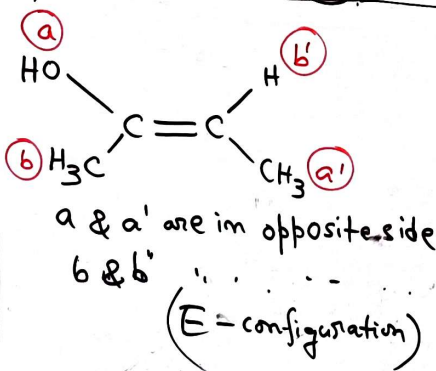 a
HO
b'
H
C=C
b H₃C
CH₃ a'
a & a' are in opposite side
b & b' " . . . - . .
(E-configuration)